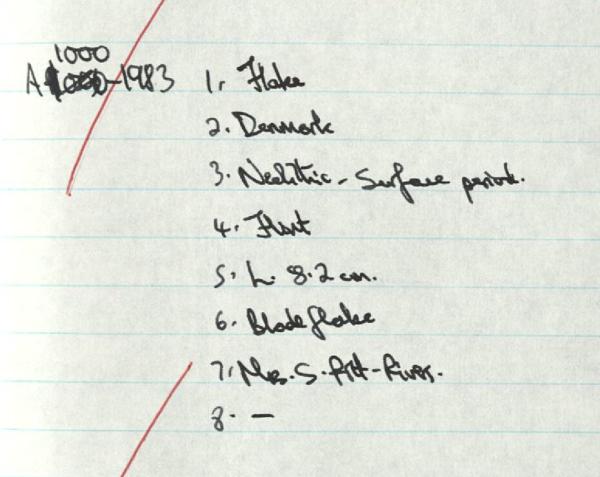 1000
A -1983 1. Flake
2. Denmark
3. Neolithic - Surface period.
4. Flint
5. L. 8.2 cm.
6. Blade flake
7. Mrs. S. Pitt-Rivers.
8. —